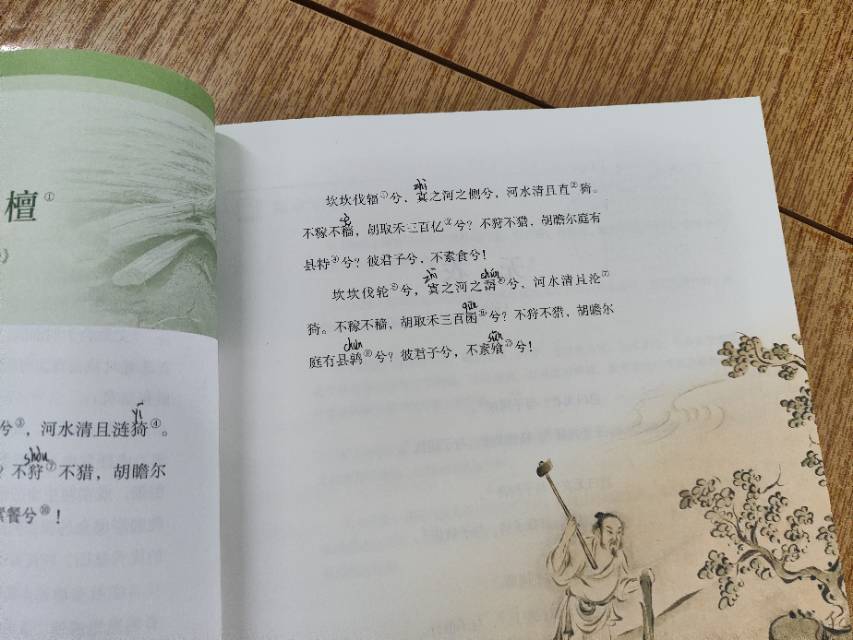 檀①
兮③，河水清且涟猗④。
yī
？不狩⑦不猎，胡瞻尔
shòu
素餐兮⑩！
坎坎伐辐①兮，寘之河之侧兮，河水清且直②猗。
zhì
不稼不穑，胡取禾三百亿③兮？不狩不猎，胡瞻尔庭有
县特④兮？彼君子兮，不素食兮！
坎坎伐轮⑤兮，寘之河之漘⑥兮，河水清且沦⑦
zhì chún
猗。不稼不穑，胡取禾三百囷⑧兮？不狩不猎，胡瞻尔
qūn
庭有县鹑⑨兮？彼君子兮，不素飧⑩兮！
chún sūn